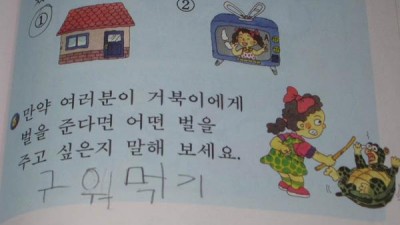 ①
②
만약 여러분이 거북이에게
벌을 준다면 어떤 벌을
주고 싶은지 말해 보세요.
구워먹기